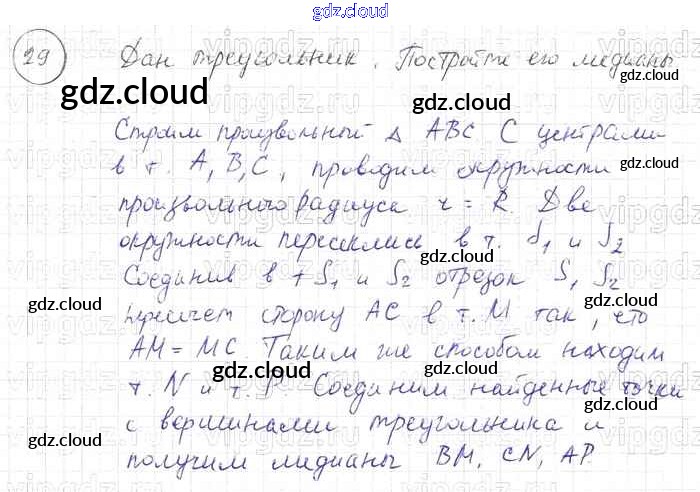 gdz.cloud
29 Дан треугольник. Постройте его медианы
gdz.cloud
gdz.cloud
gdz.cloud
Строим произвольный Δ ABC С центрами
в т. A, B, C, проводим окружности
gdz.cloud
произвольного радиуса r = R. Две
окружности пересеклись в т. S1 и S2
gdz.cloud
Соединив в т S1 и S2 отрезок S1 S2
gdz.cloud
gdz.cloud
пересечет сторону AC в т. M так, что
AM = MC. Таким же способом находим
gdz.cloud
gdz.cloud
т. N и т. P. Соединим найденные точки
gdz.cloud
с вершинами треугольника и
gdz.cloud
получим медианы BM, CN, AP.
gdz.cloud